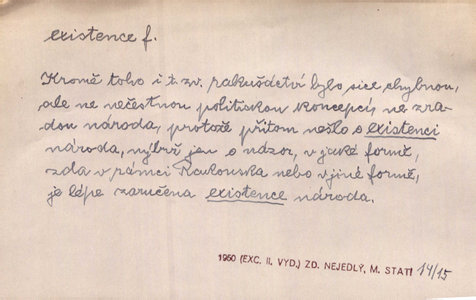 existence f.
Kromě toho i t. zv. rakušáctví bylo sice chybnou,
ale ne nečestnou politickou koncepcí, ne zra-
dou národa, protože přitom nešlo o existenci
národa, nýbrž jen o názor, v jaké formě,
zda v rámci Rakouska nebo v jiné formě,
je lépe zaručena existence národa.
1950 (EXC. II. VYD.) ZD. NEJEDLÝ, M. STATI 14/15